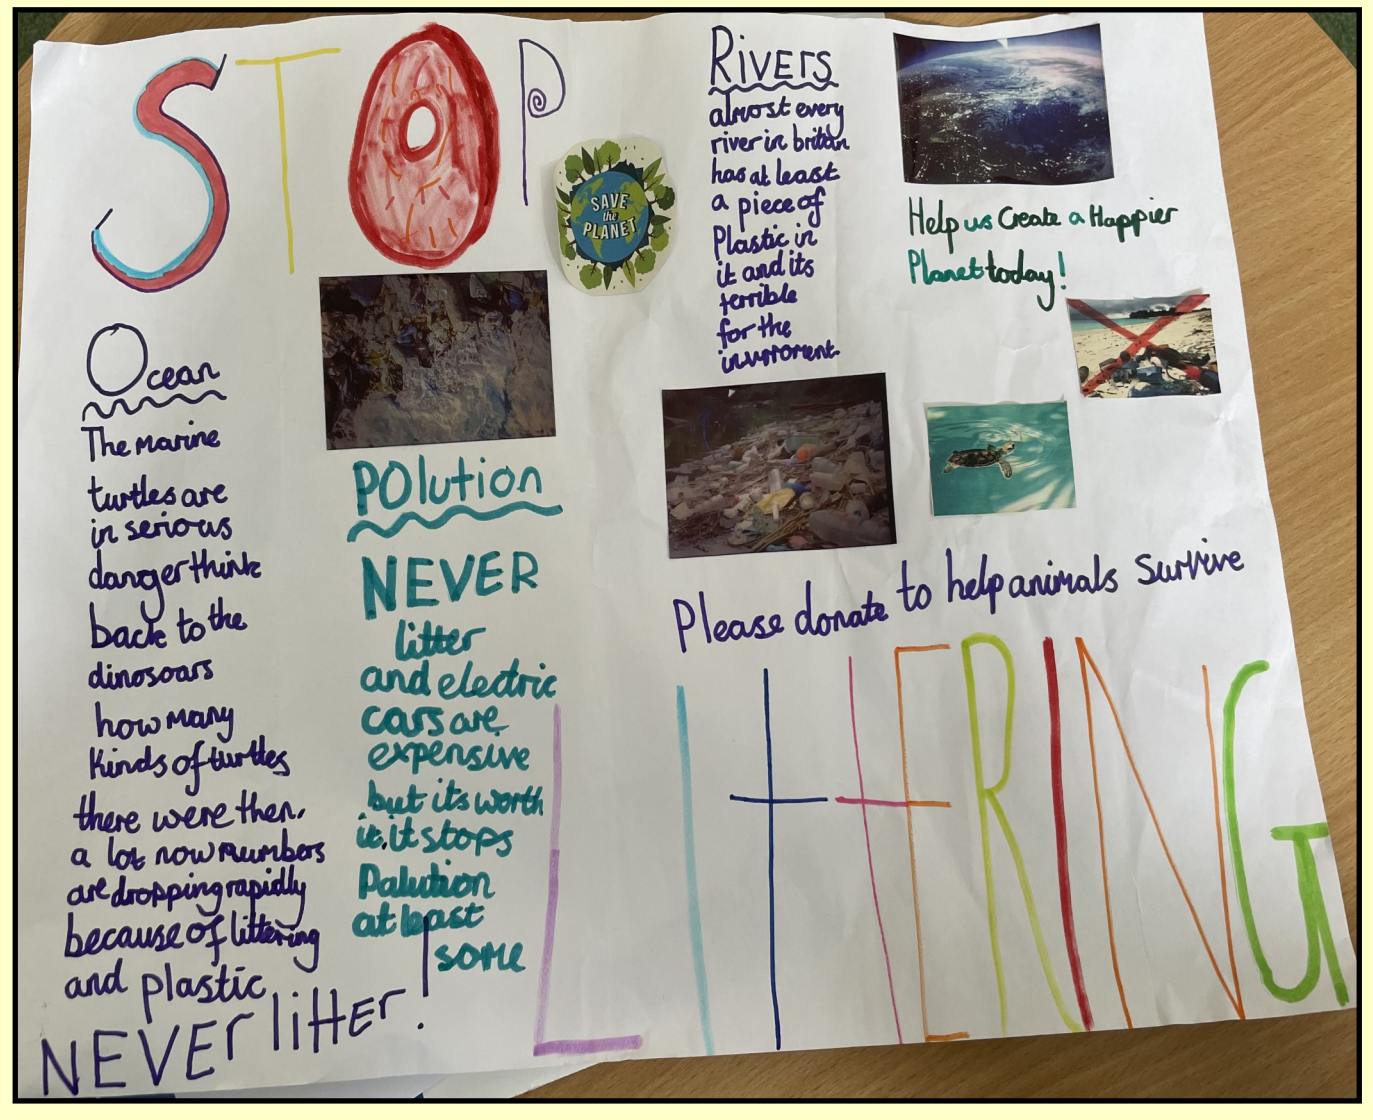 STOP
SAVE
the
PLANET
Ocean
The marine
turtles are
in serious
danger think
back to the
dinosoars
how many
kinds of turtles
there were then,
a lot now numbers
are dropping rapidly
because of littering
and plastic
NEVER litter!
POlution
NEVER
litter
and electric
cars are
expensive
but its worth
it.it stops
Palution
at least
some
RIVERS
almost every
river in britain
has at least
a piece of
Plastic in
it and its
terrible
for the
invurroment.
Help us Create a Happier
Planet today!
Please donate to help animals Survive
LITTERING